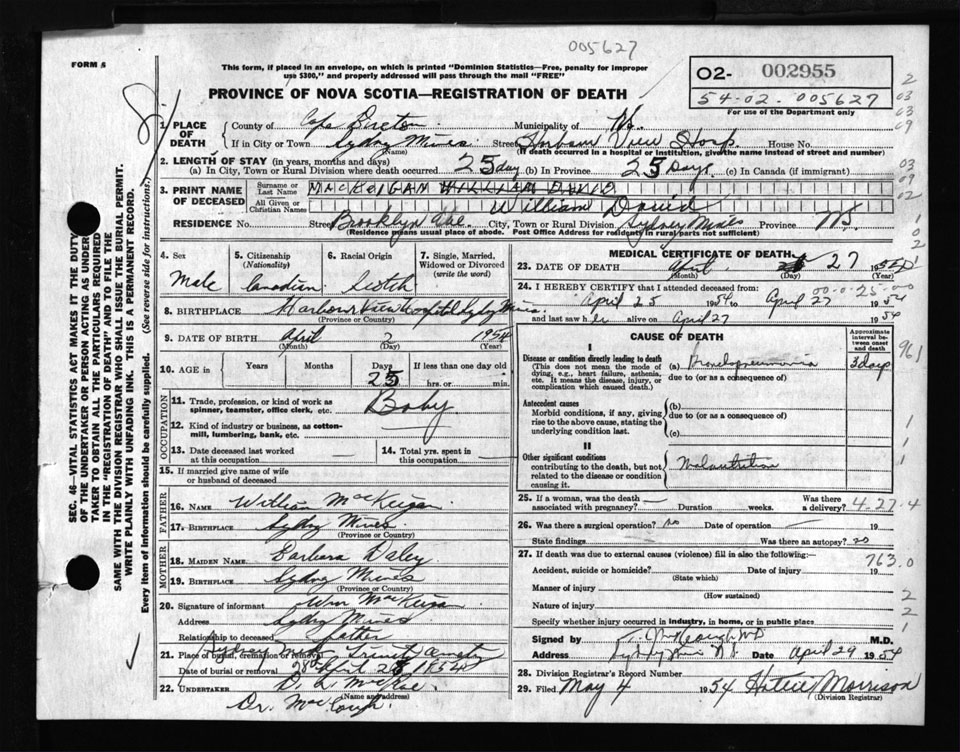 005627
FORM 5
This form, if placed in an envelope, on which is printed "Dominion Statistics—Free, penalty for improper
use $300," and properly addressed will pass through the mail "FREE"
PROVINCE OF NOVA SCOTIA—REGISTRATION OF DEATH
02- 002955
54-02. 005627
For use of the Department only
1. PLACE OF DEATH
County of Cape Breton Municipality of
If in City or Town Sydney Mines Street Harbour View Hosp. House No.
(Name) (If death occurred in a hospital or institution, give the name instead of street and number)
2. LENGTH OF STAY (in years, months and days)
(a) In City, Town or Rural Division where death occurred 25 days (b) In Province 25 Days (c) In Canada (if immigrant)
3. PRINT NAME OF DECEASED
Surname or Last Name MACKEIGAN WILLIAM DAVID
All Given or Christian Names William David
RESIDENCE No. Brooklyn Ave. City, Town or Rural Division Sydney Mines Province N.S.
(Residence means usual place of abode. Post Office Address for residents in rural parts not sufficient)
4. Sex Male
5. Citizenship (Nationality) Canadian
6. Racial Origin Scotch
7. Single, Married, Widowed or Divorced (write the word)
8. BIRTHPLACE Harbour View Hospital Sydney Mines
(Province or Country)
9. DATE OF BIRTH April 2 1954
(Month) (Day) (Year)
10. AGE IN Years Months Days 25 If less than one day old
hrs. or min.
OCCUPATION
11. Trade, profession, or kind of work as spinner, teamster, office clerk, etc. Baby
12. Kind of industry or business, as cotton-mill, lumbering, bank, etc.
13. Date deceased last worked at this occupation
14. Total yrs. spent in this occupation
15. If married give name of wife or husband of deceased
FATHER
16. NAME William MacKeigan
17. BIRTHPLACE Sydney Mines
(Province or Country)
MOTHER
18. MAIDEN NAME Barbara Daley
19. BIRTHPLACE Sydney Mines
(Province or Country)
20. Signature of informant Wm MacKeigan
Address Sydney Mines
Relationship to deceased father
21. Place of burial, cremation or removal Sydney Mines Trinity
Date of burial or removal 28th
22. UNDERTAKER D L MacRae
(Name and address)
MEDICAL CERTIFICATE OF DEATH
23. DATE OF DEATH April 27 1954
(Month) (Day) (Year)
24. I HEREBY CERTIFY that I attended deceased from: 00-0-25-00
April 25 1954 April 27 1954
and last saw her alive on April 27 1954
CAUSE OF DEATH
Approximate interval between onset and death
I
Disease or condition directly leading to death
(This does not mean the mode of dying, e.g., heart failure, asthenia, etc. It means the disease, injury, or complication which caused death.)
(a) Bronchopneumonia 3 days
due to (or as a consequence of)
Antecedent causes
Morbid conditions, if any, giving rise to the above cause, stating the underlying condition last.
(b)
due to (or as a consequence of)
(c)
II
Other significant conditions
contributing to the death, but not related to the disease or condition causing it.
Malnutrition
25. If a woman, was the death associated with pregnancy? Duration weeks. Was there a delivery?
4.27.4
26. Was there a surgical operation? no Date of operation 19
State findings Was there an autopsy? no
27. If death was due to external causes (violence) fill in also the following:—
763.0
Accident, suicide or homicide? Date of injury 19
(State which)
Manner of injury
(How sustained)
Nature of injury
Specify whether injury occurred in industry, in home, or in public place
Signed by M.D.
Address Sydney Mines N.S. Date April 29 1954
28. Division Registrar's Record Number
29. Filed May 4 1954 Hattie Morrison
(Division Registrar)
SEC. 46—VITAL STATISTICS ACT MAKES IT THE DUTY
OF THE UNDERTAKER OR PERSON ACTING AS UNDERTAKER
TO OBTAIN ALL THE PARTICULARS REQUIRED
IN THE "REGISTRATION OF DEATH" AND TO FILE THE
SAME WITH THE DIVISION REGISTRAR WHO SHALL ISSUE THE BURIAL PERMIT.
WRITE PLAINLY WITH UNFADING INK. THIS IS A PERMANENT RECORD.
Every item of information should be carefully supplied. (See reverse side for instructions.)